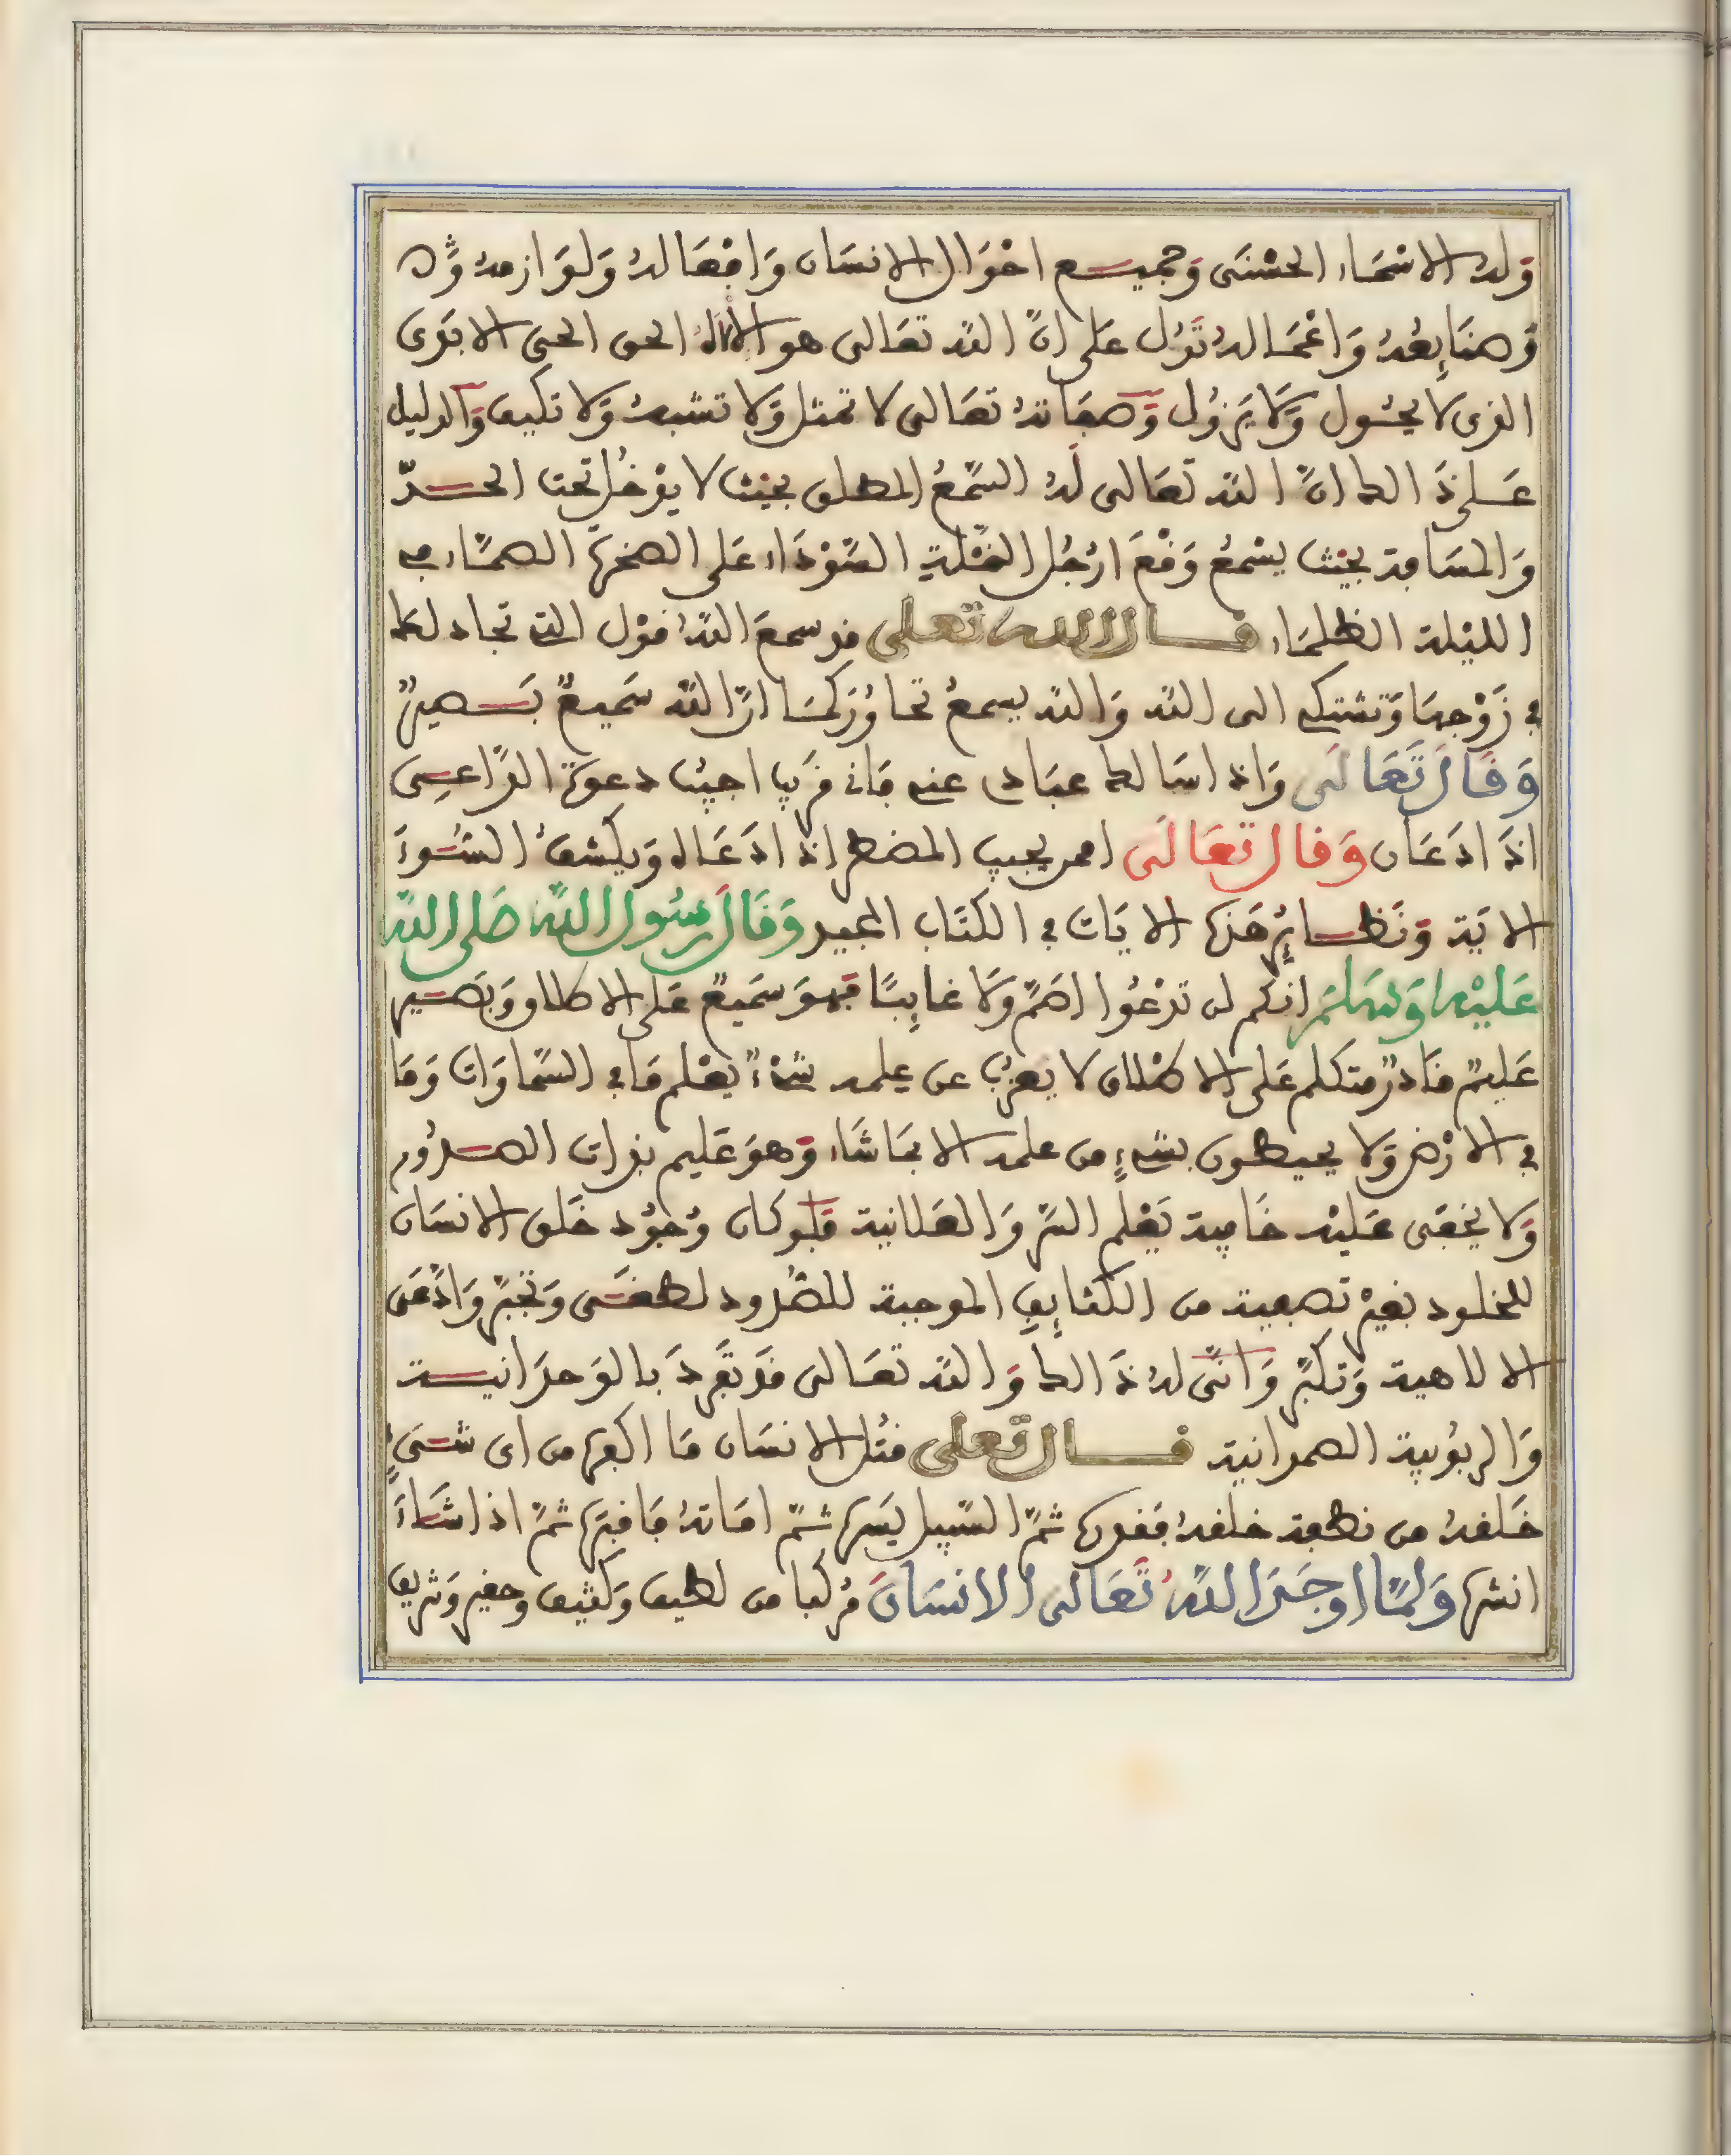 وله الاسماء الحسنى وجميع احوال الانسان وافعاله ولوازمه
وصنايعه واعماله تدل على ان الله تعالى هو الاله الحق الحي الابدى
الذى لا يحول ولا يزول وصفاته تعالى لا تمثل ولا تشبه ولا تكيف والدليل
على ذالك ان الله تعالى له السمع المطلق بحيث لا يدخل تحت الحد
والمسافة بحيث يسمع وقع ارجل النملة السوداء على الصخرة الصماء في
الليلة الظلماء قال الله تعلى قد سمع الله قول التي تجادلك
في زوجها وتشتكي الى الله والله يسمع تحاوركما ان الله سميع بصير
وقال تعالى واذا سالك عبادى عني فاني قريب اجيب دعوة الداعي
اذا دعان وقال تعالى امن يجيب المضطر اذا دعاه ويكشف السوء
الاية ونظاير هذه الايات في الكتاب المجيد وقال رسول الله صلى الله
عليه وسلم انكم لن تدعوا اصم ولا غايبا فهو سميع على الاطلاق وبصير
عليم قادر متكلم على الاطلاق لا يعزب عن علمه شيء يعلم ما في السماوات وما
في الارض ولا يحيطون بشيء من علمه الا بما شاء وهو عليم بذات الصدور
ولا يخفى عليه خافية يعلم السر والعلانية فلو كان وجود خلق الانسان
للخلود بغير تصفية من الكثايف الموجبة للطرود لطغى وتجبر وادعى
الالاهية وتكبر وانى له ذالك والله تعالى قد تفرد بالوحدانية
والربوبية الصمدانية قال تعلى قتل الانسان ما اكفره من اى شىء
خلقه من نطفة خلقه فقدره ثم السبيل يسره ثم اماته فاقبره ثم اذا شاء
انشره ولما اوجد الله تعالى الانسان مركبا من لطيف وكثيف وحقير وشريف